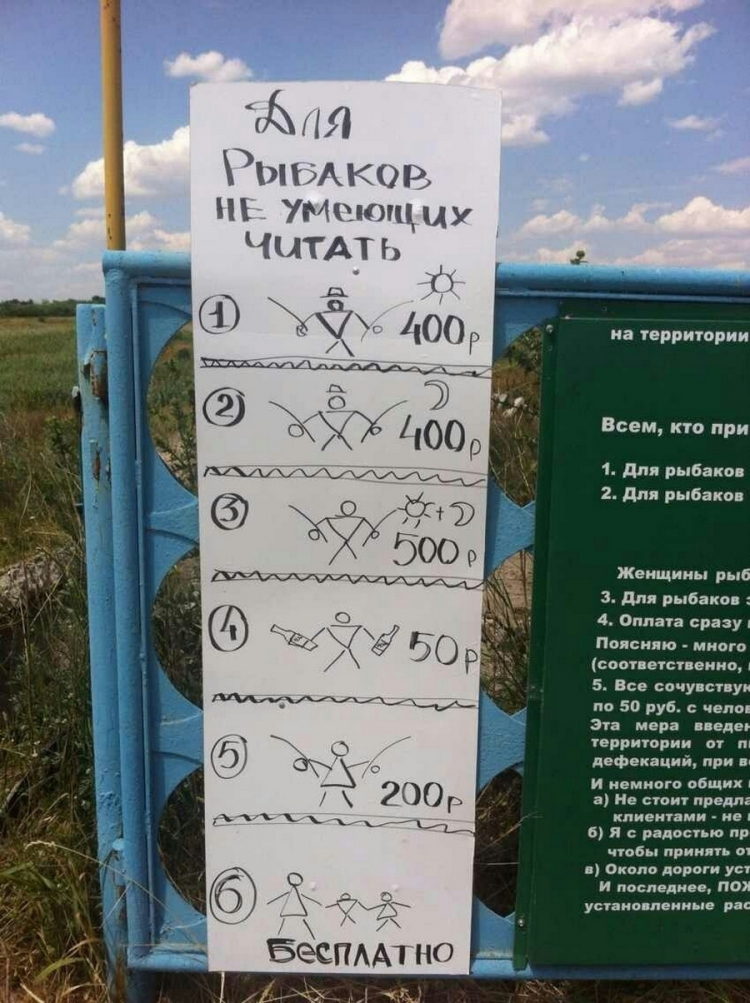 Для
Рыбаков
не умеющих
читать
1
400р
2
400р
3
+
500р
4
50р
5
200р
6
Бесплатно
на территории
Всем, кто
1. Для рыбаков
2. Для рыбаков
Женщины
3. Для рыбаков
4. Оплата сразу
Поясняю - много
(соответственно,
5. Все
по 50 руб. с
Эта мера
территории от
дефекаций, при
И немного общих
а) Не стоит
клиентами - не
б) Я с радостью
чтобы принять
в) Около дороги
И последнее,
установленные